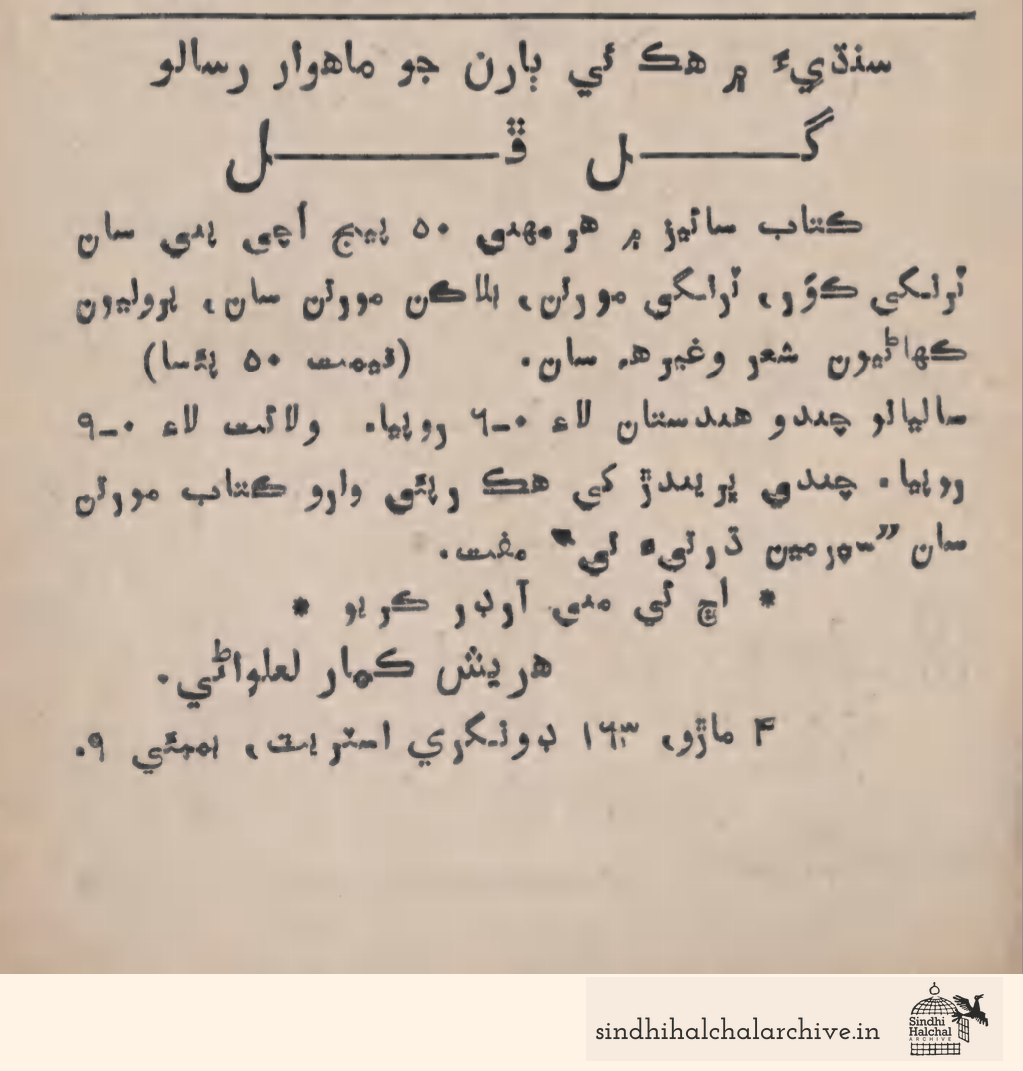 سنڌيءَ ۾ هڪ ئي ٻارن جو ماهوار رسالو
گل ڦل
ڪتاب سائيز ۾ هر مهني ۵۰ پيج اڇي پني سان
ٽرنگي ڪوَر، ٽرانگي مورتن، بلاڪن مورتن سان، پروليون
ڪهاڻيون شعر وغيره سان. (قيمت ۵۰ پئسا)
ساليانو چندو هندستان لاءِ ۰-۶ روپيا. ولائت لاءِ ۰-۹
روپيا. چندي ڀريندڙ کي هڪ رپئي وارو ڪتاب مورتن
سان ”سورمين ڌرتيءَ تي“ مفت.
* اڄ ئي مني آرڊر ڪريو *
هريش ڪمار لعلواڻي.
۴ ماڙو، ۱۶۳ ڊونگري اسٽريٽ، بمبئي ۹.
sindhihalchalarchive.in
Sindhi
Halchal
ARCHIVE